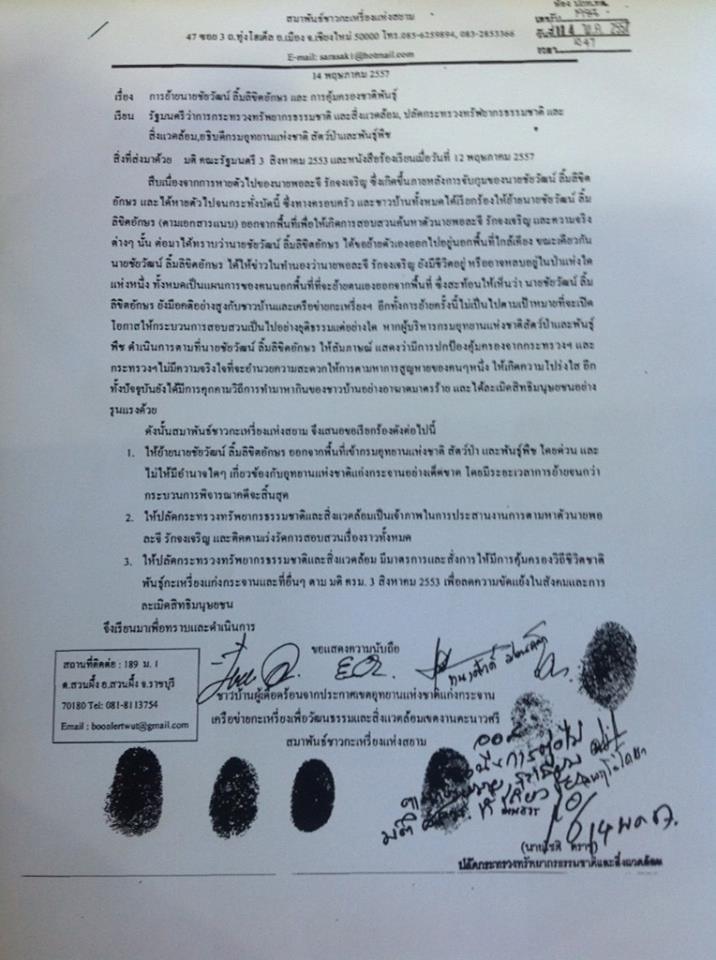 สมาพันธ์ชาวกะเหรี่ยงแห่งสยาม
47 ซอย 3 ถ.ทุ่งโฮเต็ล อ.เมือง จ.เชียงใหม่ 50000 โทร.085-6259894, 083-2853366
E-mail: sarasaki@hotmail.com
14 พฤษภาคม 2557
เรื่อง การย้ายนายชัยวัฒน์ ลิ้มลิขิตอักษร และ การคุ้มครองชาติพันธุ์
เรียน รัฐมนตรีว่าการกระทรวงทรัพยากรธรรมชาติ และสิ่งแวดล้อม, ปลัดกระทรวงทรัพยากรธรรมชาติ และ
สิ่งแวดล้อม,อธิบดีกรมอุทยานแห่งชาติ สัตว์ป่าและพันธุ์พืช
สิ่งที่ส่งมาด้วย มติ คณะรัฐมนตรี 3 สิงหาคม 2553 และหนังสือร้องเรียนเมื่อวันที่ 12 พฤษภาคม 2557
สืบเนื่องจากการหายตัวไปของนายพอละจี รักจงเจริญ ซึ่งเกิดขึ้นภายหลังการจับกุมของนายชัยวัฒน์ ลิ้มลิขิต
อักษร และได้หายตัวไปจนกระทั่งบัดนี้ ซึ่งทางครอบครัว และชาวบ้านทั้งหมดได้เรียกร้องให้ย้ายนายชัยวัฒน์ ลิ้ม
ลิขิตอักษร (ตามเอกสารแนบ) ออกจากพื้นที่เพื่อให้เกิดการสอบสวนค้นหาตัวนายพอละจี รักจงเจริญ และความจริง
ต่างๆ นั้น ต่อมาได้ทราบว่านายชัยวัฒน์ ลิ้มลิขิตอักษร ได้ขอย้ายตัวเองออกไปอยู่นอกพื้นที่ใกล้เคียง ขณะเดียวกัน
นายชัยวัฒน์ ลิ้มลิขิตอักษร ได้ให้ข่าวในทำนองว่านายพอละจี รักจงเจริญ ยังมีชีวิตอยู่ หรืออาจหลบอยู่ในป่าแห่งใด
แห่งหนึ่ง ทั้งหมดเป็นแผนการของคนนอกพื้นที่ที่จะย้ายตนเองออกจากพื้นที่ ซึ่งสะท้อนให้เห็นว่า นายชัยวัฒน์ ลิ้ม
ลิขิตอักษร ยังมีอคติอย่างสูงกับชาวบ้านและเครือข่ายกะเหรี่ยงฯ อีกทั้งการย้ายครั้งนี้ไม่เป็นไปตามเป้าหมายที่จะเปิด
โอกาสให้กระบวนการสอบสวนเป็นไปอย่างยุติธรรมแต่อย่างใด หากผู้บริหารกรมอุทยานแห่งชาติสัตว์ป่าและพันธุ์
พืช ดำเนินการตามที่นายชัยวัฒน์ ลิ้มลิขิตอักษร ให้สัมภาษณ์ แสดงว่ามีการปกป้องคุ้มครองจากกระทรวงฯ และ
กระทรวงฯไม่มีความจริงใจที่จะอำนวยความสะดวกให้การตามหาการสูญหายของคนๆหนึ่ง ให้เกิดความโปร่งใส อีก
ทั้งปัจจุบันยังได้มีการคุกคามวิถีการทำมาหากินของชาวบ้านอย่างอาฆาตมาดร้าย และได้ละเมิดสิทธิมนุษยชนอย่าง
รุนแรงด้วย
ดังนั้นสมาพันธ์ชาวกะเหรี่ยงแห่งสยาม จึงเสนอขอเรียกร้องดังต่อไปนี้
1. ให้ย้ายนายชัยวัฒน์ ลิ้มลิขิตอักษร ออกจากพื้นที่เข้ากรมอุทยานแห่งชาติ สัตว์ป่า และพันธุ์พืช โดยด่วน และ
ไม่ให้มีอำนาจใดๆ เกี่ยวข้องกับอุทยานแห่งชาติแก่งกระจานอย่างเด็ดขาด โดยมีระยะเวลาการย้ายจนกว่า
กระบวนการพิจารณาคดีจะสิ้นสุด
2. ให้ปลัดกระทรวงทรัพยากรธรรมชาติและสิ่งแวดล้อมเป็นเจ้าภาพในการประสานงานการตามหาตัวนายพอ
ละจี รักจงเจริญ และติดตามเร่งรัดการสอบสวนเรื่องราวทั้งหมด
3. ให้ปลัดกระทรวงทรัพยากรธรรมชาติและสิ่งแวดล้อม มีมาตรการและสั่งการ ให้มีการคุ้มครองวิถีชีวิตชาติ
พันธุ์กะเหรี่ยงแก่งกระจานและที่อื่นๆ ตาม มติ ครม. 3 สิงหาคม 2553 เพื่อลดความขัดแย้งในสังคมและการ
ละเมิดสิทธิมนุษยชน
จึงเรียนมาเพื่อทราบและดำเนินการ
ขอแสดงความนับถือ
สถานที่ติดต่อ : 189 ม. 1
ต.สวนผึ้ง อ.สวนผึ้ง จ.ราชบุรี
70180 โทร: 081-8113754
Email : boonlertwut@gmail.com
ชาวบ้านผู้เดือดร้อนจากประกาศเขตอุทยานแห่งชาติแก่งกระจาน
เครือข่ายกะเหรี่ยงเพื่อวัฒนธรรมและสิ่งแวดล้อมเขตงานตะนาวศรี
สมาพันธ์ชาวกะเหรี่ยงแห่งสยาม
14 พค ๕๗.
(นายโชติ ตราชู)
ปลัดกระทรวงทรัพยากรธรรมชาติและสิ่งแวดล้อม